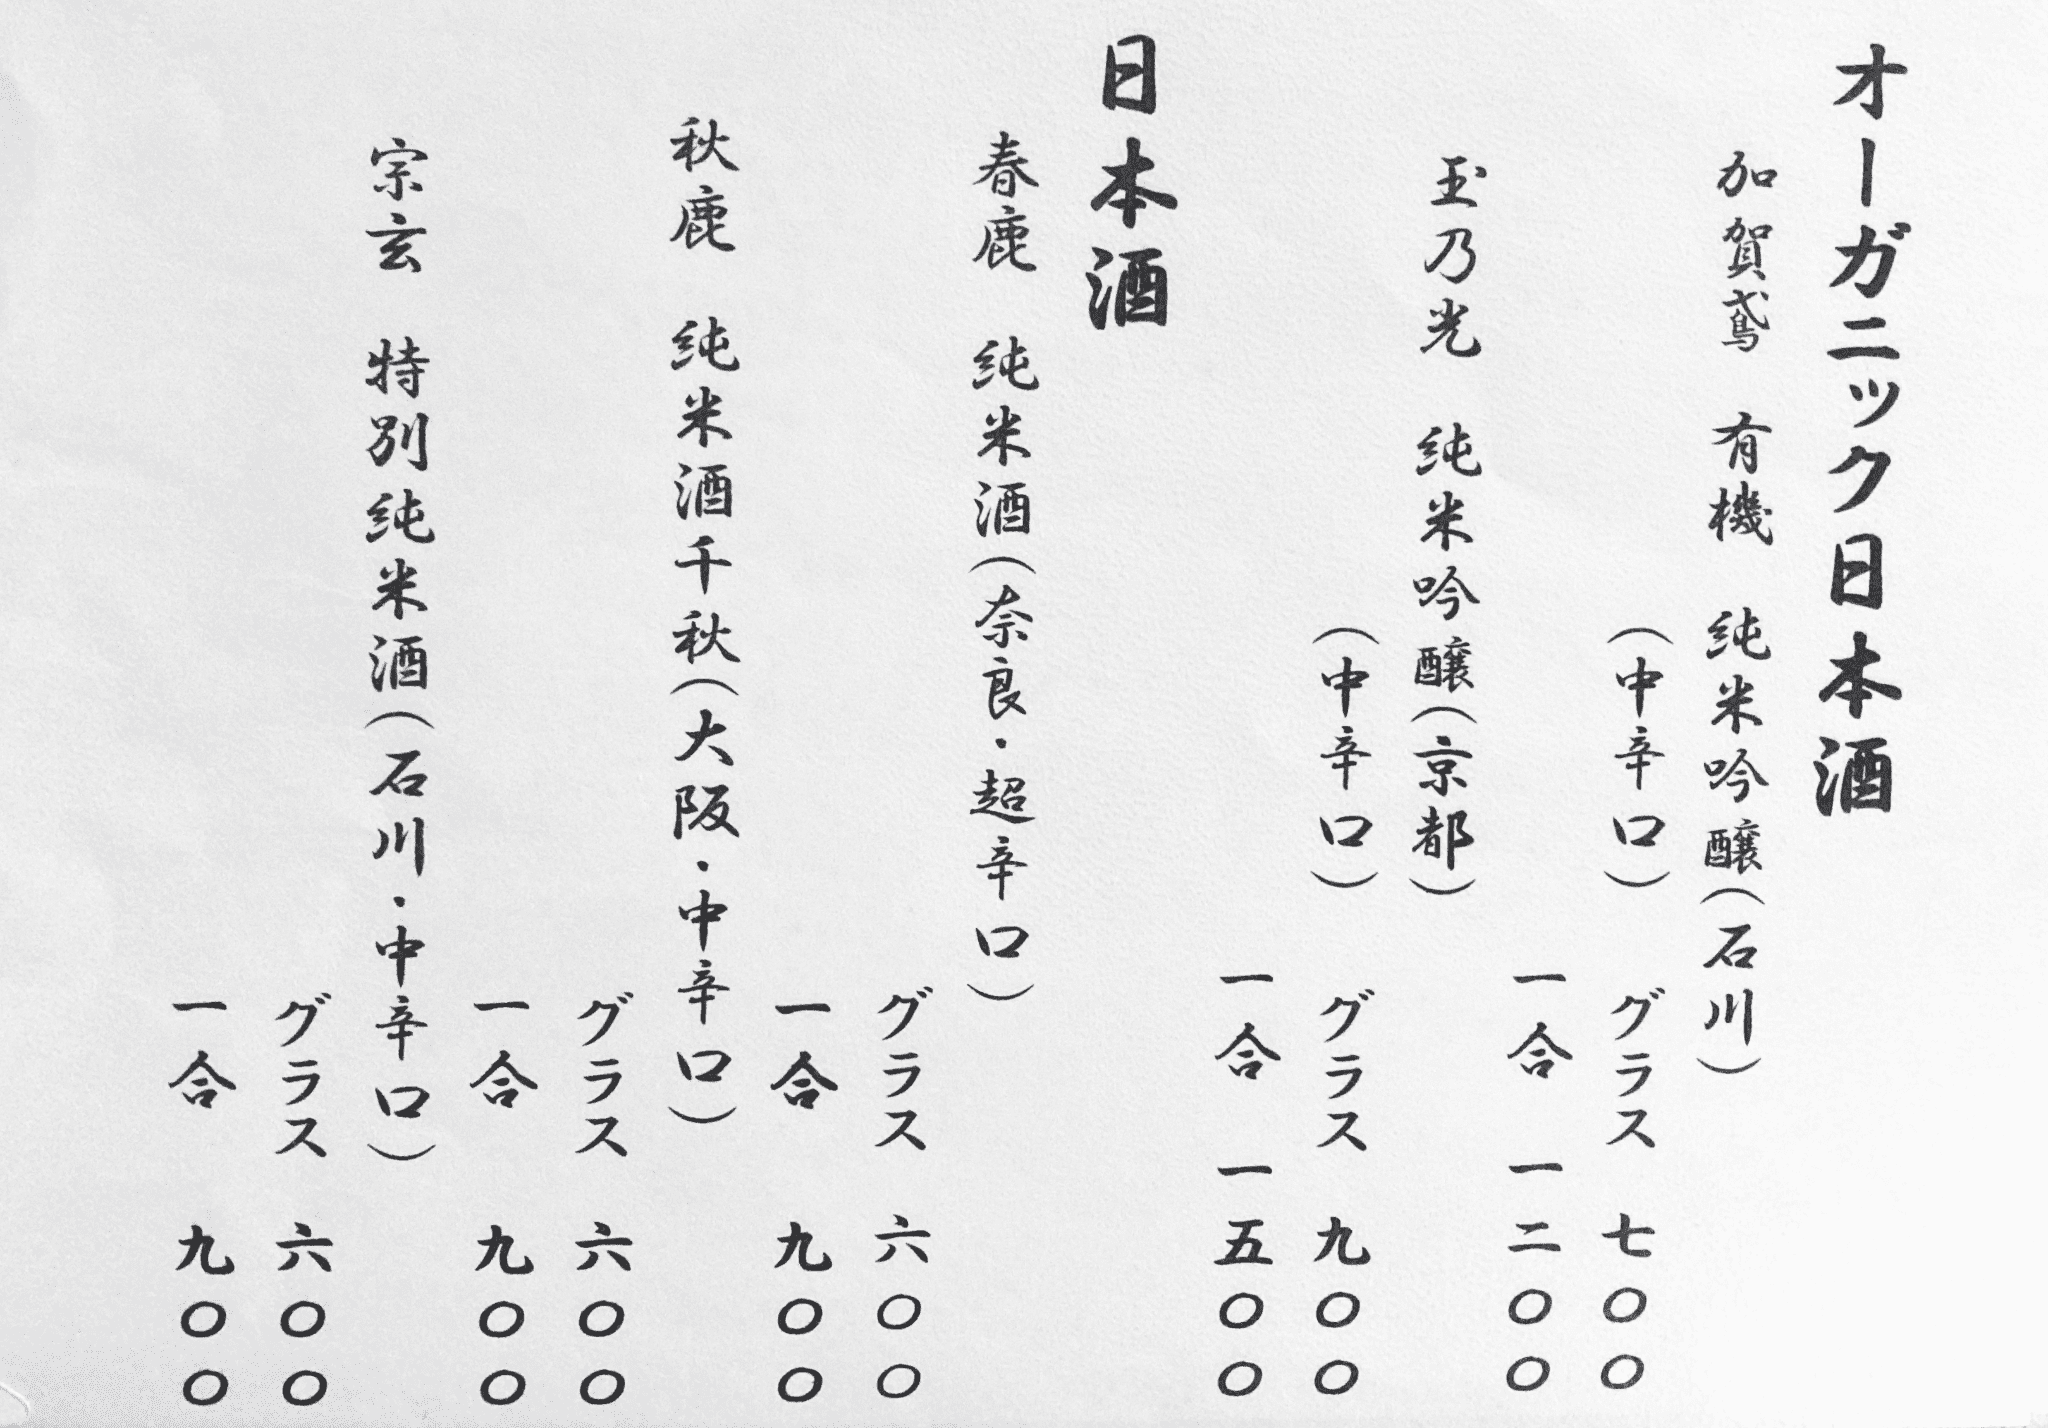 オーガニック日本酒
加賀鳶　有機　純米吟醸（石川）
（中辛口）　グラス　七〇〇
一合　一二〇〇
玉乃光　純米吟醸（京都）
（中辛口）　グラス　九〇〇
一合　一五〇〇
日本酒
春鹿　純米酒（奈良・超辛口）
グラス　六〇〇
一合　九〇〇
秋鹿　純米酒千秋（大阪・中辛口）
グラス　六〇〇
一合　九〇〇
宗玄　特別純米酒（石川・中辛口）
グラス　六〇〇
一合　九〇〇